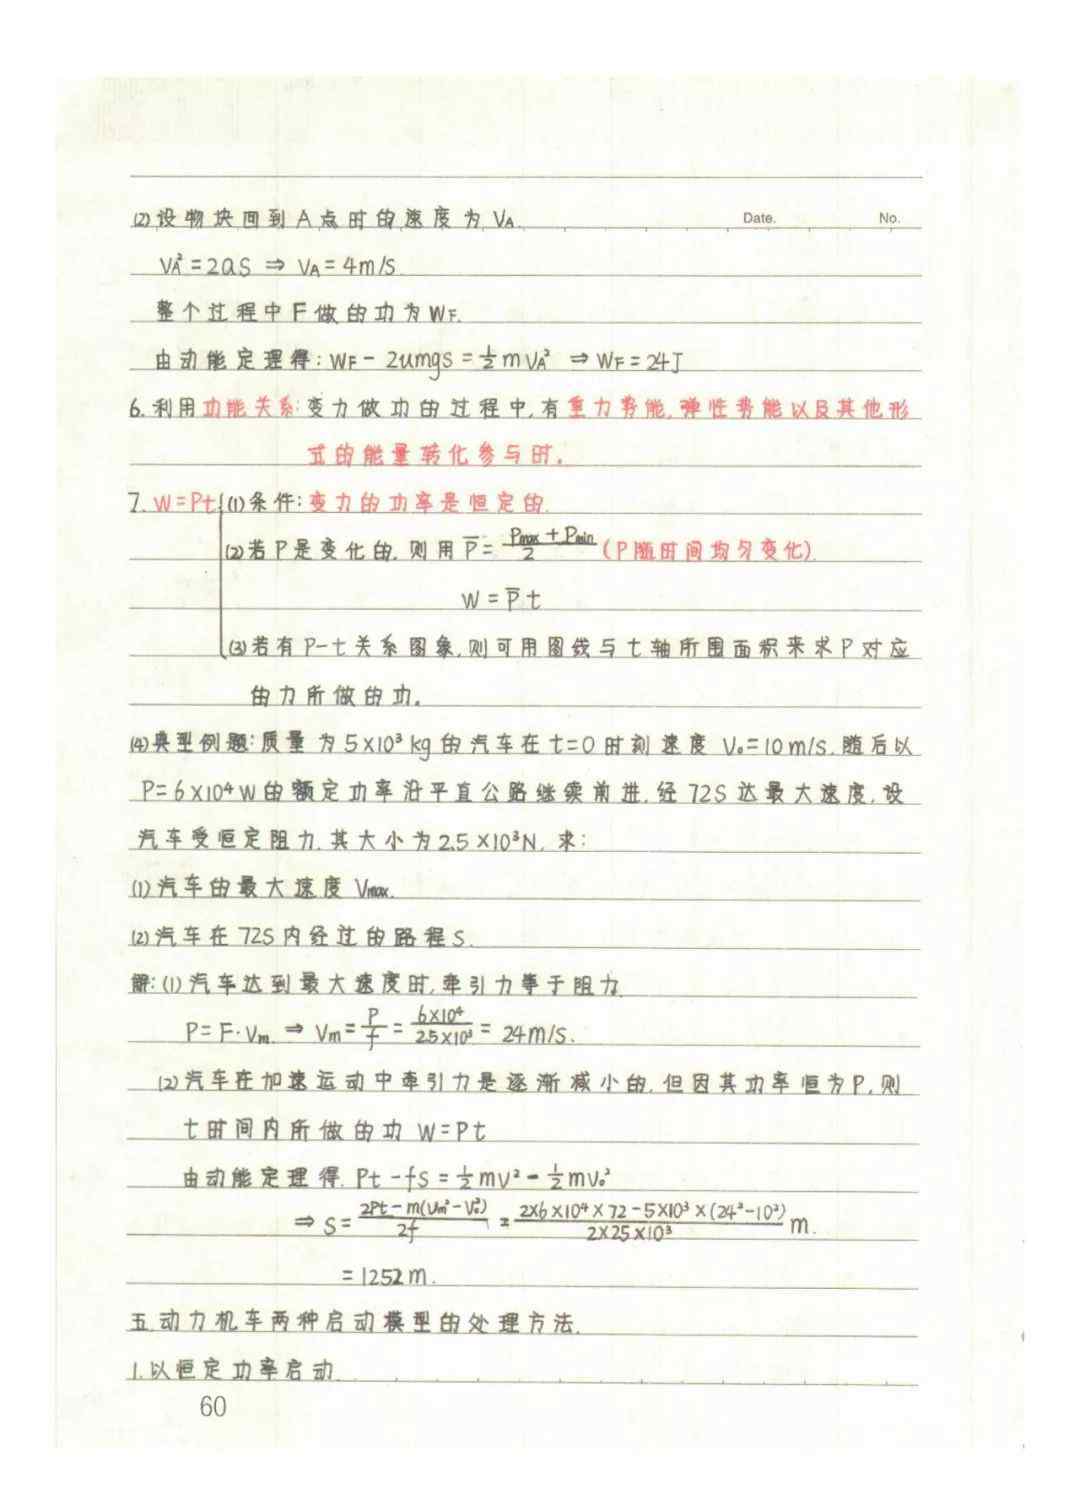 Date. No.
(2)设物块回到A点时的速度为VA.
VA²=2as ⇒ VA=4m/s
整个过程中F做的功为WF.
由动能定理得:WF-2umgs=½mVA² ⇒ WF=24J
6.利用功能关系:变力做功的过程中,有重力势能,弹性势能以及其他形
式的能量转化参与时。
7. W=Pt (1)条件:变力的功率是恒定的.
(2)若P是变化的.则用P̅=(Pmax+Pmin)/2 (P随时间均匀变化).
W=P̅t
(3)若有P-t关系图象,则可用图线与t轴所围面积来求P对应
的力所做的功。
(4)典型例题:质量为5×10³kg的汽车在t=0时刻速度V₀=10m/s.随后以
P=6×10⁴W的额定功率沿平直公路继续前进,经72S达最大速度,设
汽车受恒定阻力.其大小为2.5×10³N. 求:
(1)汽车的最大速度Vmax.
(2)汽车在72S内经过的路程S.
解:(1)汽车达到最大速度时,牵引力等于阻力
P=F·Vm. ⇒ Vm=P/f=6×10⁴/2.5×10³=24m/s.
(2)汽车在加速运动中牵引力是逐渐减小的.但因其功率恒为P,则
t时间内所做的功 W=Pt
由动能定理得. Pt-fs=½mv²-½mv₀²
⇒ S=(2Pt-m(Vm²-V₀²))/2f=(2×6×10⁴×72-5×10³×(24²-10²))/(2×25×10³) m.
=1252m.
五.动力机车两种启动模型的处理方法.
1.以恒定功率启动
60